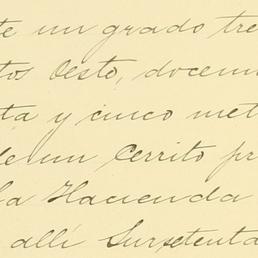 te un grado tre
tos Oeste, docem
ta y cinco met
de un Cerrito pr
la Hacienda
allí Sursetenta